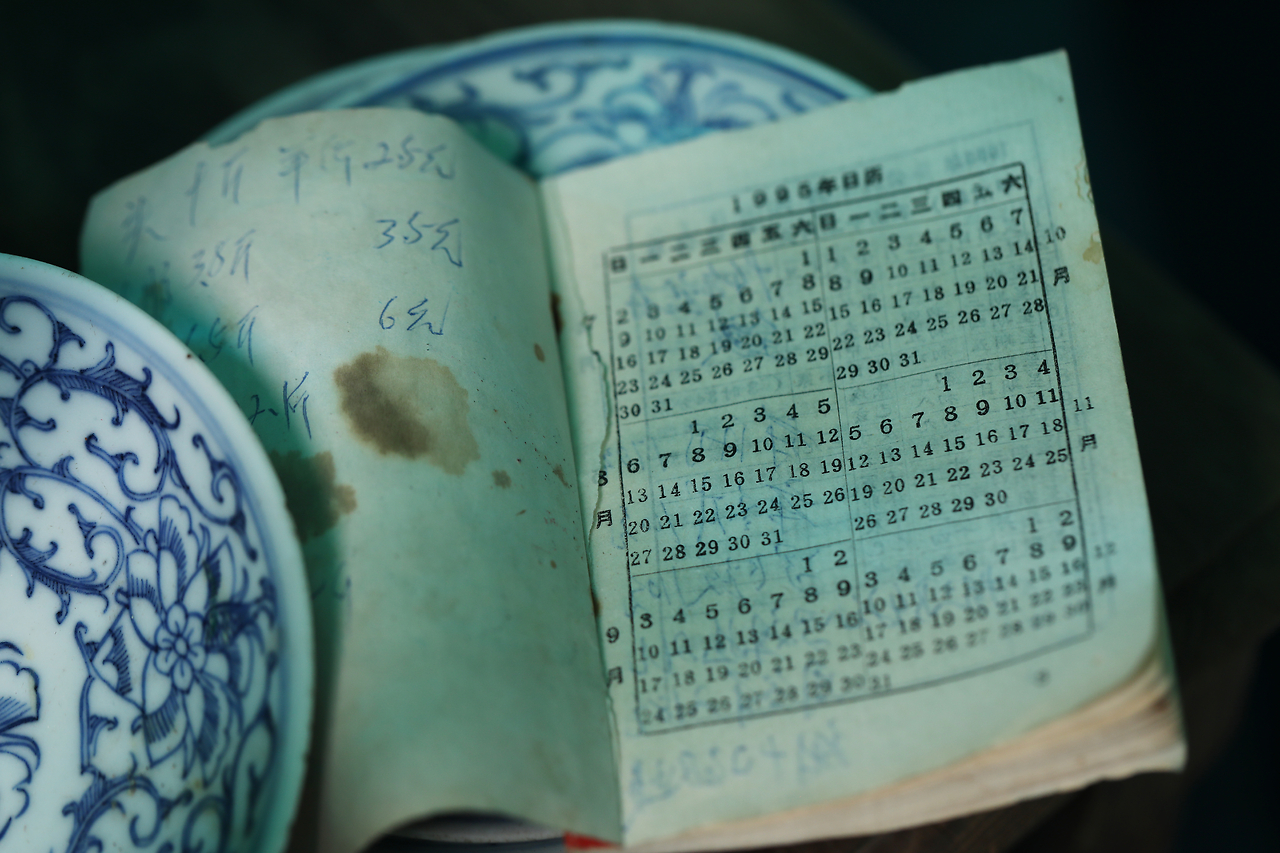 25元
米 3.5斤 35元
6元
2斤
1995年日历
日 一 二 三 四 五 六 日 一 二 三 四 五 六
1 1 2 3 4 5 6 7
2 3 4 5 6 7 8 8 9 10 11 12 13 14
9 10 11 12 13 14 15 15 16 17 18 19 20 21
16 17 18 19 20 21 22 22 23 24 25 26 27 28
23 24 25 26 27 28 29 29 30 31
30 31
7
10月
1 2 3 4 5 1 2 3 4
6 7 8 9 10 11 12 5 6 7 8 9 10 11
13 14 15 16 17 18 19 12 13 14 15 16 17 18
20 21 22 23 24 25 26 19 20 21 22 23 24 25
27 28 29 30 31 26 27 28 29 30
8月
11月
1 2 1 2
3 4 5 6 7 8 9 3 4 5 6 7 8 9
10 11 12 13 14 15 16 10 11 12 13 14 15 16
17 18 19 20 21 22 23 17 18 19 20 21 22 23
24 25 26 27 28 29 30 24 25 26 27 28 29 30
31
9月
12月